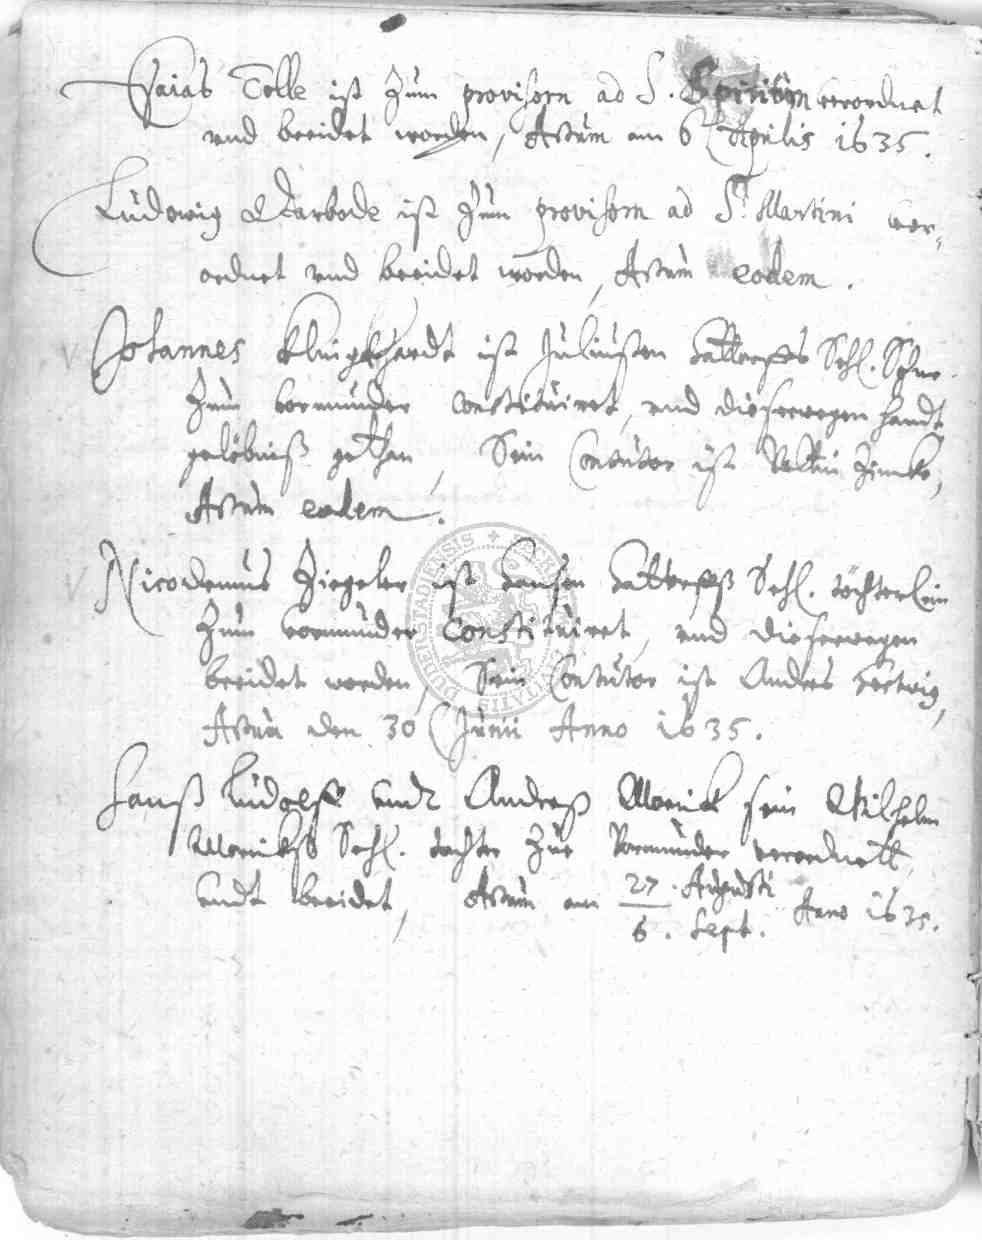 Esaias Tolle ist Zum provisorn ad S. Spiritum verordnet
vnd beeidet worden, Actum am 6 Aprilis 1635.
Ludowig Warbode ist Zum provisorn ad S. Martini ver-
ordnet vnd beeidet worden, Actum eodem.
Johannes Klinghardt ist Sehl. Sohne
Zum vormunder Constituiret, vnd dieserwegen handt
gelöbniß gethan, Sein Contutor ist Valtin
Actum eodem.
Nicodemus Ziegeler ist Hansen Sehl. töchterlein
Zum vormunder Constituiret, vnd dieserwegen
beeidet worden, Sein Contutor ist Andres Hertwig,
Actum den 30 Junii Anno 1635.
Hanß Ludolff undt Andreß sein Wilhelm
Sehl. tochter Zue Vormunder verordnett,
undt beeidet, Actum am 27. Augusti / 6. Sept. Anno 1635.
SIGILLUM CIVITATIS DUDERSTADIENSIS